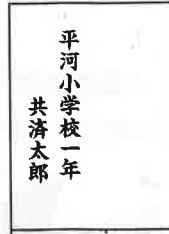 平河小学校一年
共済太郎